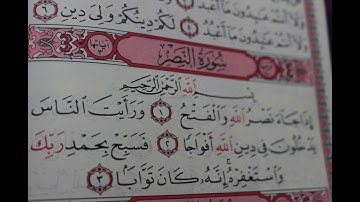 وَلَا أَنتُمْ عَٰبِدُونَ مَا أَعْبُدُ
وَلَا أَنتُمْ عَٰبِدُونَ مَا أَعْبُدُ ۝٥ لَكُمْ دِينُكُمْ وَلِىَ دِينِ ۝٦
سُورَةُ النَّصْرِ
بِسْمِ اللَّهِ الرَّحْمَٰنِ الرَّحِيمِ
إِذَا جَآءَ نَصْرُ اللَّهِ وَالْفَتْحُ ۝١ وَرَأَيْتَ النَّاسَ
يَدْخُلُونَ فِى دِينِ اللَّهِ أَفْوَاجًا ۝٢ فَسَبِّحْ بِحَمْدِ رَبِّكَ
وَاسْتَغْفِرْهُ إِنَّهُۥ كَانَ تَوَّابًۢا ۝٣